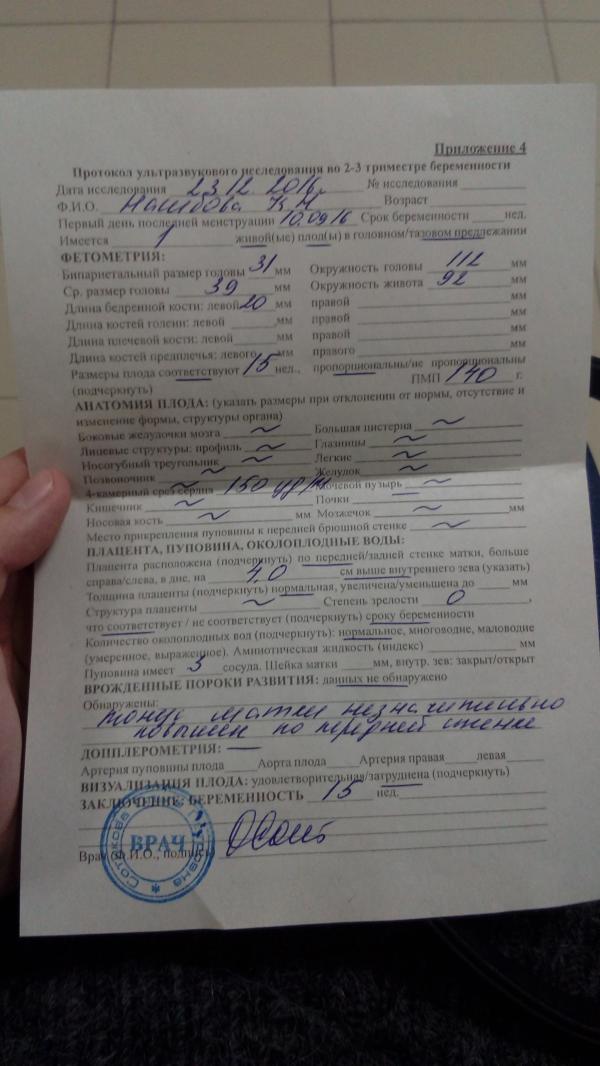 Приложение 4
Протокол ультразвукового исследования во 2-3 триместре беременности
Дата исследования 23.12.2016 № исследования
Ф.И.О. К Н Возраст
Первый день последней менструации 10.09.16 Срок беременности нед.
Имеется 1 живой(ые) плод(ы) в головном/тазовом предлежании
ФЕТОМЕТРИЯ:
Бипариетальный размер головы 31 мм Окружность головы 112 мм
Ср. размер головы 39 мм Окружность живота 92 мм
Длина бедренной кости: левой 20 мм правой мм
Длина костей голени: левой мм правой мм
Длина плечевой кости: левой мм правой мм
Длина костей предплечья: левого мм правого мм
Размеры плода соответствуют 15 нед., пропорциональны/не пропорциональны
(подчеркнуть) ПМП 140 г.
АНАТОМИЯ ПЛОДА: (указать размеры при отклонении от нормы, отсутствие и
изменение формы, структуры органа)
Боковые желудочки мозга ~ Большая цистерна ~
Лицевые структуры: профиль ~ Глазницы ~
Носогубный треугольник ~ Легкие ~
Позвоночник ~ Желудок ~
4-камерный срез сердца 150 уд/м Мочевой пузырь ~
Кишечник ~ Почки ~
Носовая кость ~ мм Мозжечок ~ мм
Место прикрепления пуповины к передней брюшной стенке ~
ПЛАЦЕНТА, ПУПОВИНА, ОКОЛОПЛОДНЫЕ ВОДЫ:
Плацента расположена (подчеркнуть) по передней/задней стенке матки, больше
справа/слева, в дне, на 4,0 см выше внутреннего зева (указать)
Толщина плаценты (подчеркнуть) нормальная, увеличена/уменьшена до мм
Структура плаценты ~ Степень зрелости 0 ,
что соответствует / не соответствует (подчеркнуть) сроку беременности
Количество околоплодных вод (подчеркнуть): нормальное, многоводие, маловодие
(умеренное, выраженное). Амниотическая жидкость (индекс) мм
Пуповина имеет 3 сосуда. Шейка матки мм, внутр. зев: закрыт/открыт
ВРОЖДЕННЫЕ ПОРОКИ РАЗВИТИЯ: данных не обнаружено
Обнаружены:
тонус матки незначительно
повышен по передней стенке
ДОППЛЕРОМЕТРИЯ: —
Артерия пуповины плода Аорта плода Артерия правая левая
ВИЗУАЛИЗАЦИЯ ПЛОДА: удовлетворительная/затруднена (подчеркнуть)
ЗАКЛЮЧЕНИЕ: БЕРЕМЕННОСТЬ 15 нед.
ВРАЧ
Врач (Ф.И.О., подпись)